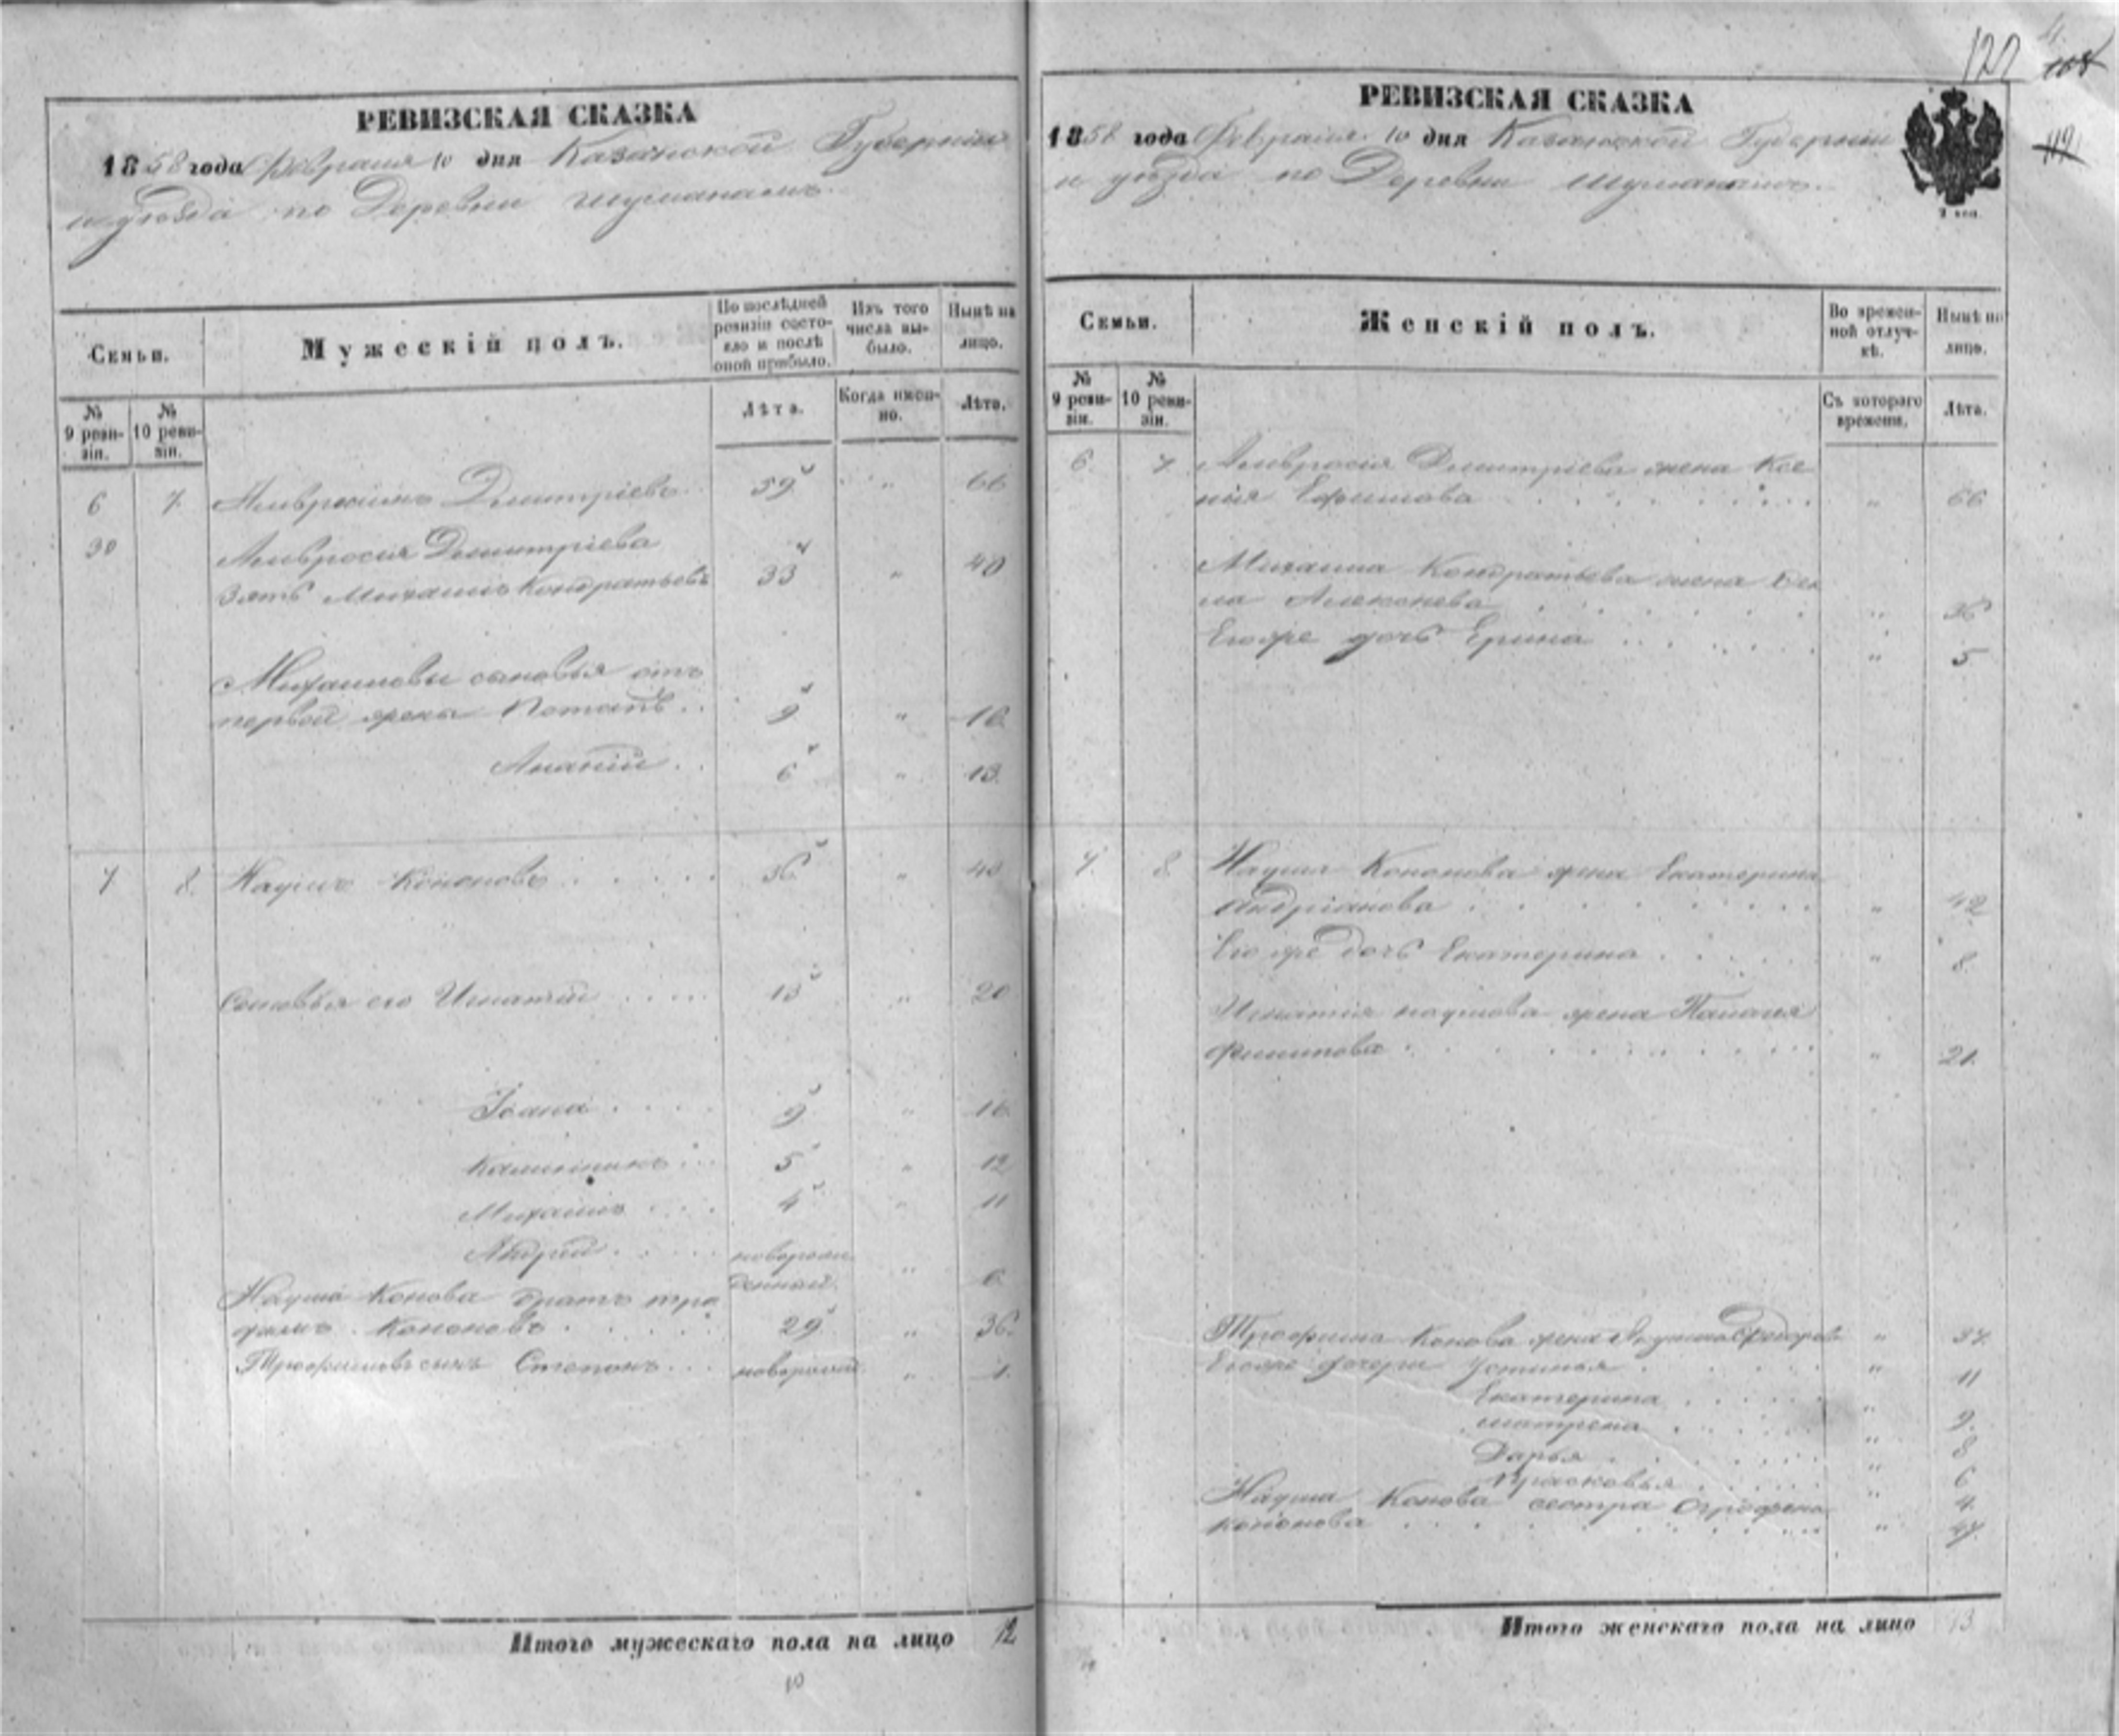 РЕВИЗСКАЯ СКАЗКА
1858 года Февраля 10 дня Казанской Губерніи
и уѣзда по Деревни Шуманамъ.
Семьи.
Мужескій полъ.
По послѣдней ревизіи состояло и послѣ оной прибыло.
Изъ того числа выбыло.
Нынѣ на лицо.
№ 9 ревизіи.
№ 10 ревизіи.
Лѣта.
Когда именно.
Лѣта.
6 7. Амвросимъ Дмитріевъ 59 " 66
30 Амвросія Дмитріева
зять Михаилъ Кондратьевъ 33 " 40
Михаиловы сыновья отъ
первой жены Потапъ 9 " 16
Ананій 6 " 13.
7 8. Наумъ Кононовъ 36 " 43
Сыновья его Игнатій 13 " 20
Іоана 9 " 16
5 " 12
Михаилъ 4 " 11
Андрей новорож
денный " 6
Наума Конова братъ тро
фимъ Кононовъ 29 " 36.
Трофимовъ сынъ Степанъ новорожд. " 1.
Итого мужескаго пола на лицо 12
10
РЕВИЗСКАЯ СКАЗКА
1858 года Февраля 10 дня Казанской Губерніи
и уѣзда по Деревни Шуманамъ.
Семьи.
Женскій полъ.
Во временной отлучкѣ.
Нынѣ на лицо.
№ 9 ревизіи.
№ 10 ревизіи.
Съ котораго времени.
Лѣта.
6. 7 Амвросія Дмитріева жена Ксе
нія Ефимова " 66
Михаила Кондратьева жена
Алексеева " 36
Егоже дочь Ерина " 5
7. 8 Наума Кононова жена Екатерина
Андріанова " 42
Егоже дочь Екатерина " 8.
Игнатія наумова жена Палагея
Филипова " 21.
Трофима Конова жена Акулина Федорова " 37.
Егоже дочери Устинья " 11
Екатерина " 9.
матрена " 8
Дарья " 6
Прасковья " 4.
Наума Конова сестра Огрофена
кононова " 47.
Итого женскаго пола на лицо 13